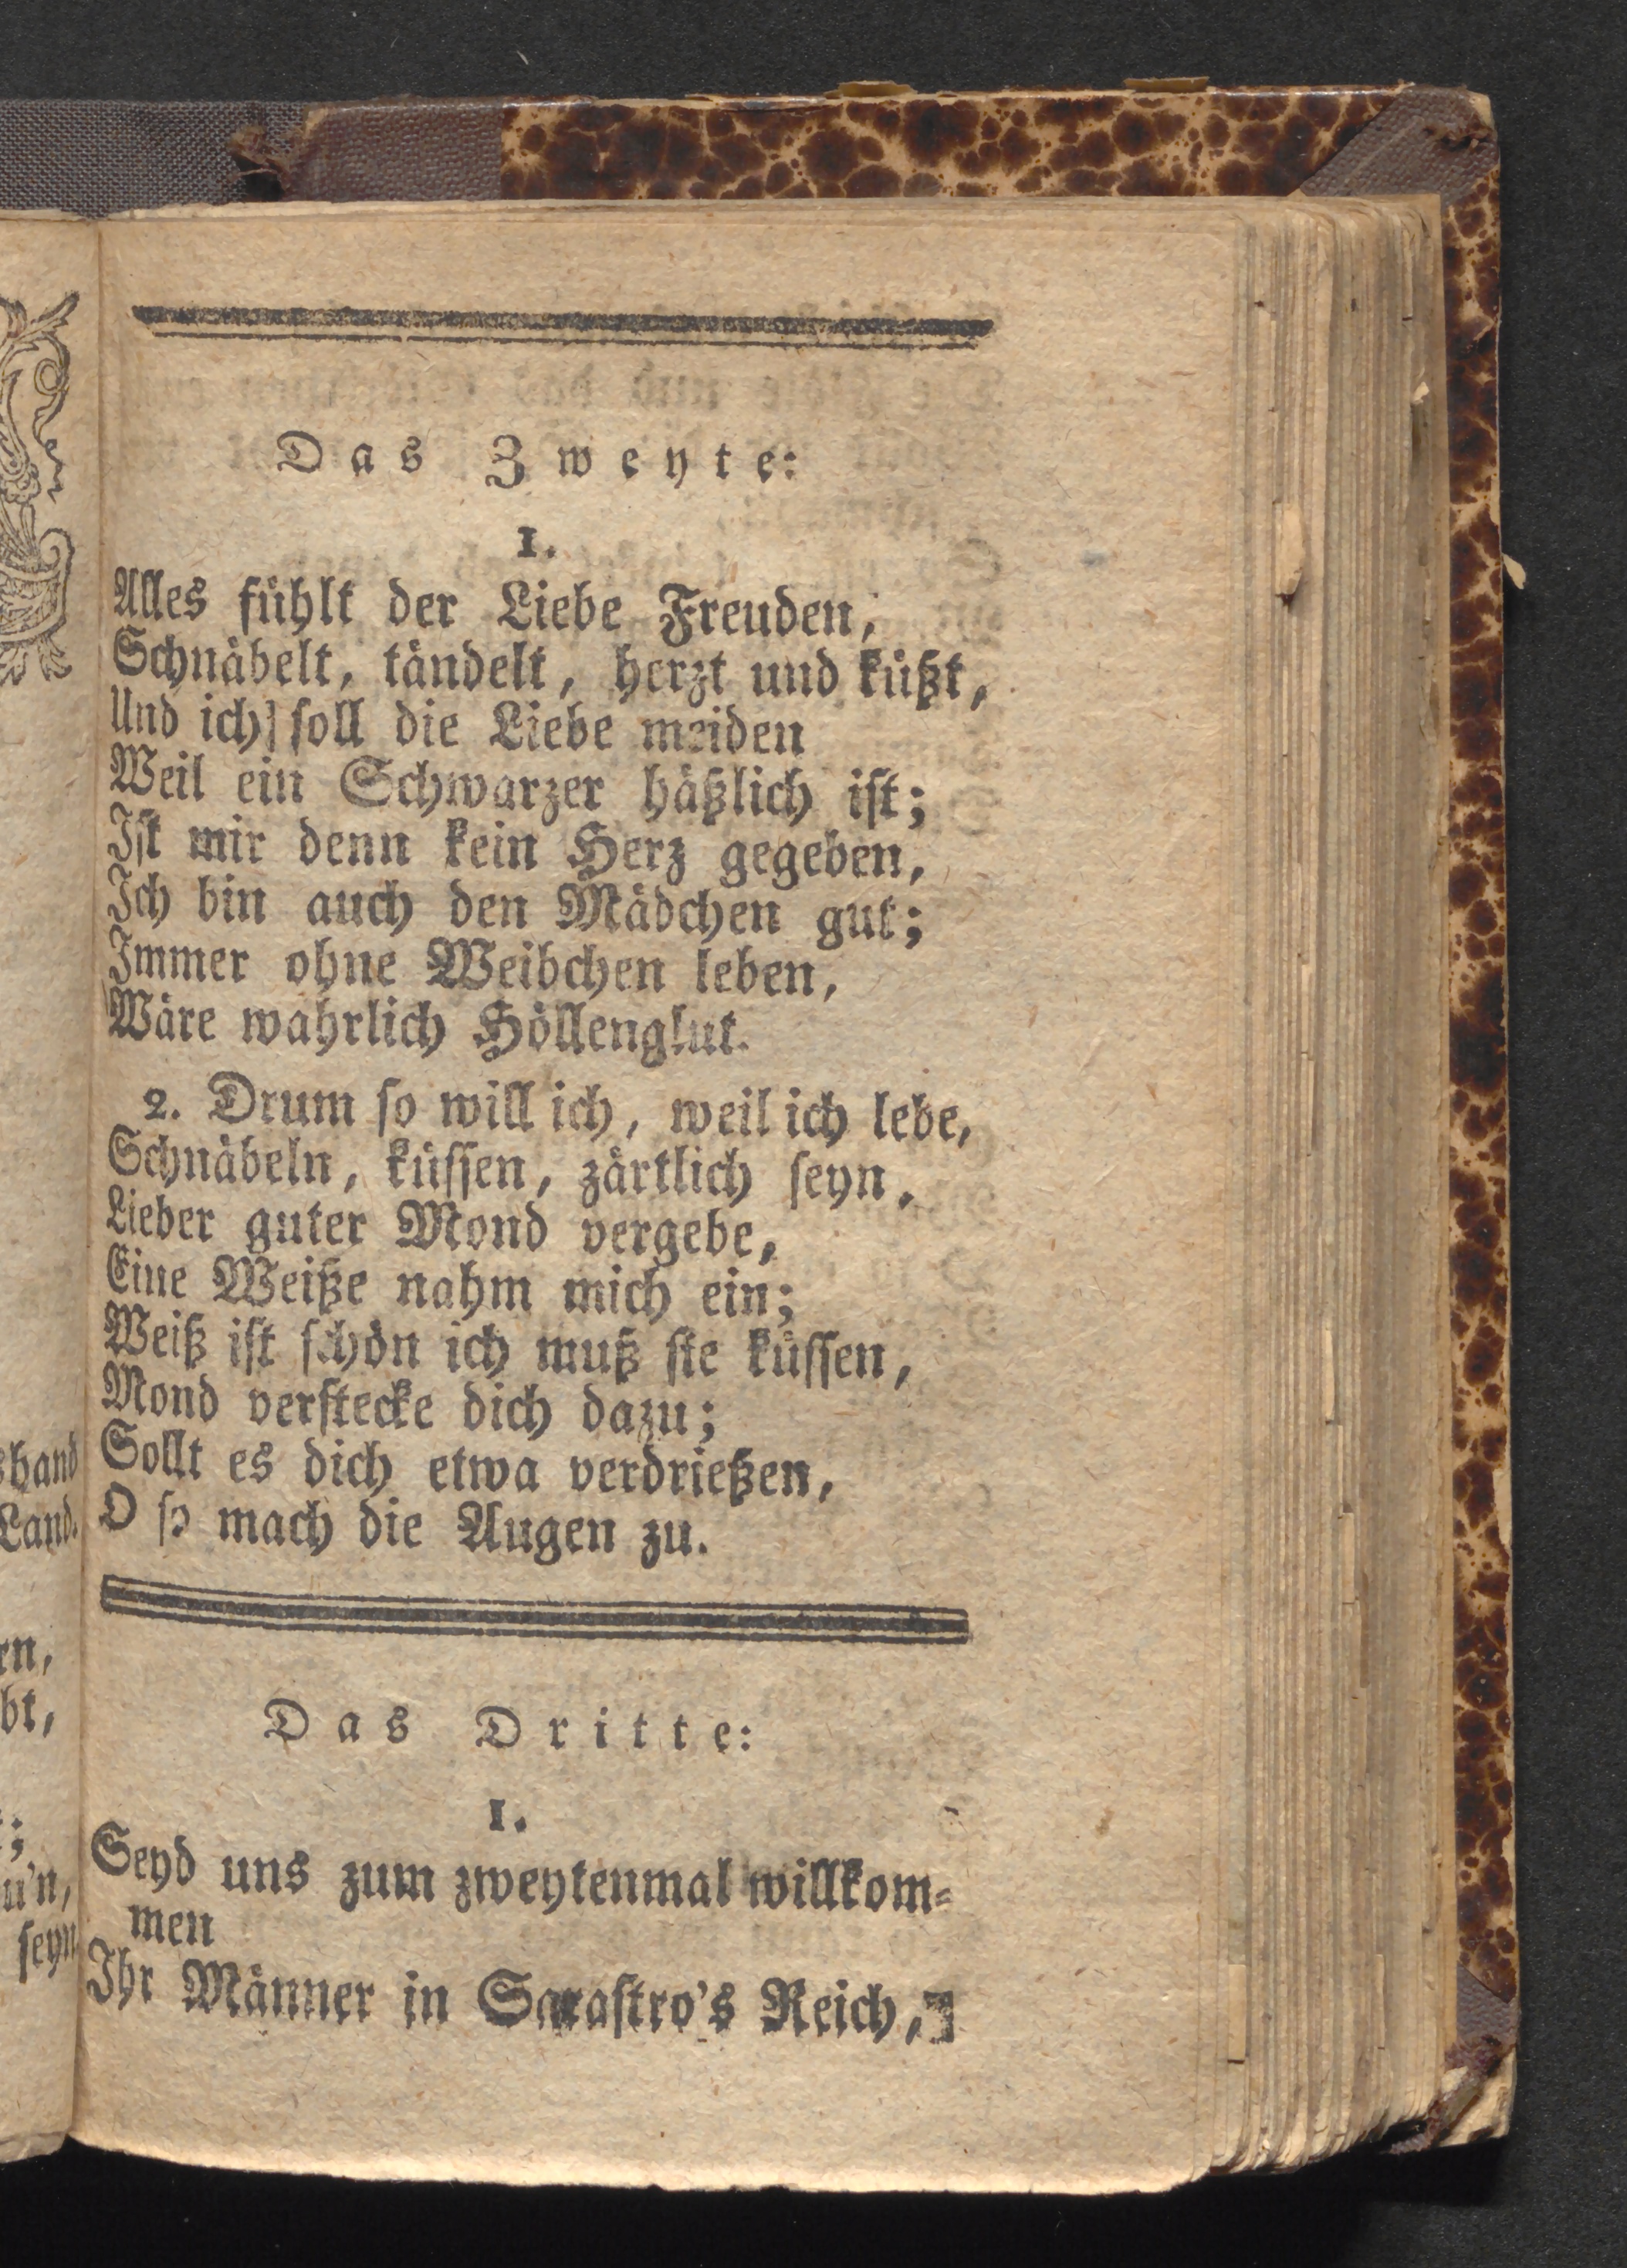 Das Zweyte:
1.
Alles fühlt der Liebe Freuden,
Schnäbelt, tändelt, herzt und küßt,
Und ich soll die Liebe meiden
Weil ein Schwarzer häßlich ist;
Ist mir denn kein Herz gegeben,
Ich bin auch den Mädchen gut;
Immer ohne Weibchen leben,
Wäre wahrlich Höllenglut.
2. Drum so will ich, weil ich lebe,
Schnäbeln, küssen, zärtlich seyn,
Lieber guter Mond vergebe,
Eine Weiße nahm mich ein;
Weiß ist schön ich muß sie küssen,
Mond verstecke dich dazu;
Sollt es dich etwa verdrießen,
O so mach die Augen zu.
Das Dritte:
1.
Seyd uns zum zweytenmal willkom-
men
Ihr Männer in Sarastro's Reich,
Land.
seyn